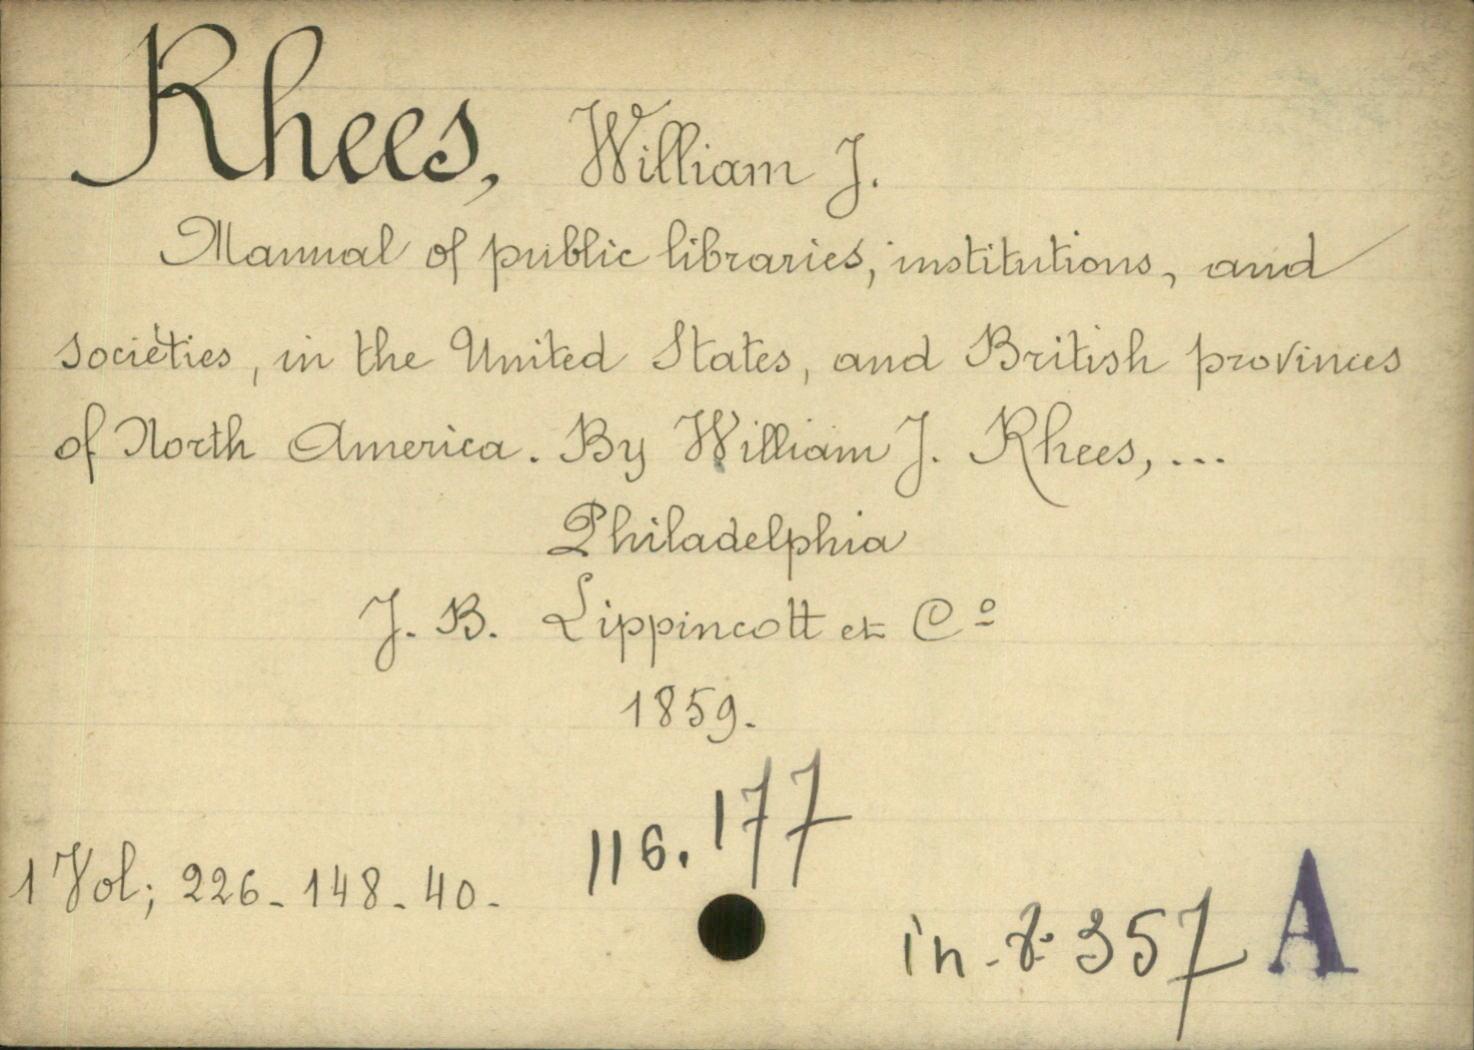 Rhees, William J.
Manual of public libraries, institutions, and
sociéties, in the United States, and British provinces
of North America. By William J. Rhees, ...
Philadelphia
J. B. Lippincott et Cº
1859.
116.177
1 Vol; 226-148-40-
in-8º 357 A